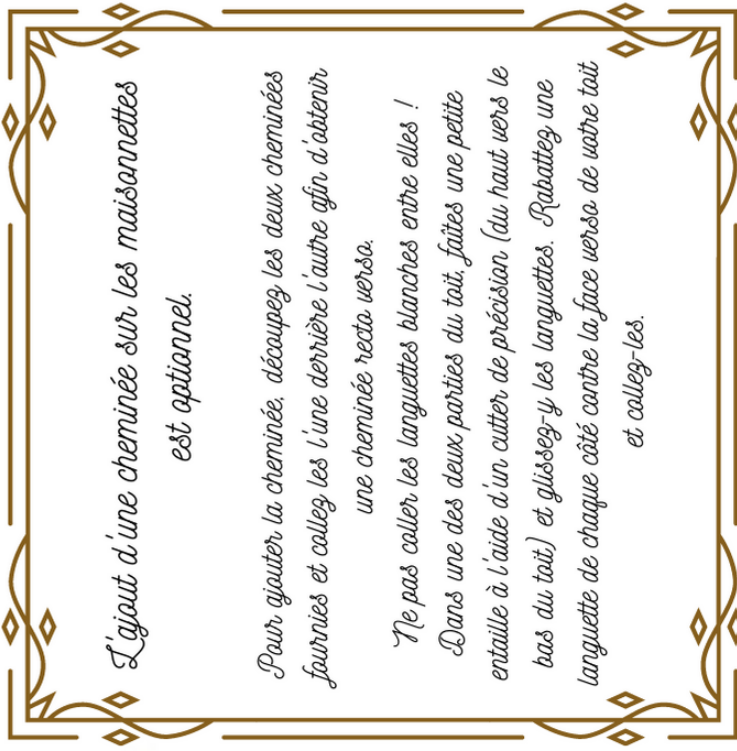 L'ajout d'une cheminée sur les maisonnettes
est optionnel.
Pour ajouter la cheminée, découpez les deux cheminées
fournies et collez les l'une derrière l'autre afin d'obtenir
une cheminée recto verso.
Ne pas coller les languettes blanches entre elles !
Dans une des deux parties du toit, faîtes une petite
entaille à l'aide d'un cutter de précision (du haut vers le
bas du toit) et glissez-y les languettes. Rabattez une
languette de chaque côté contre la face verso de votre toit
et collez-les.